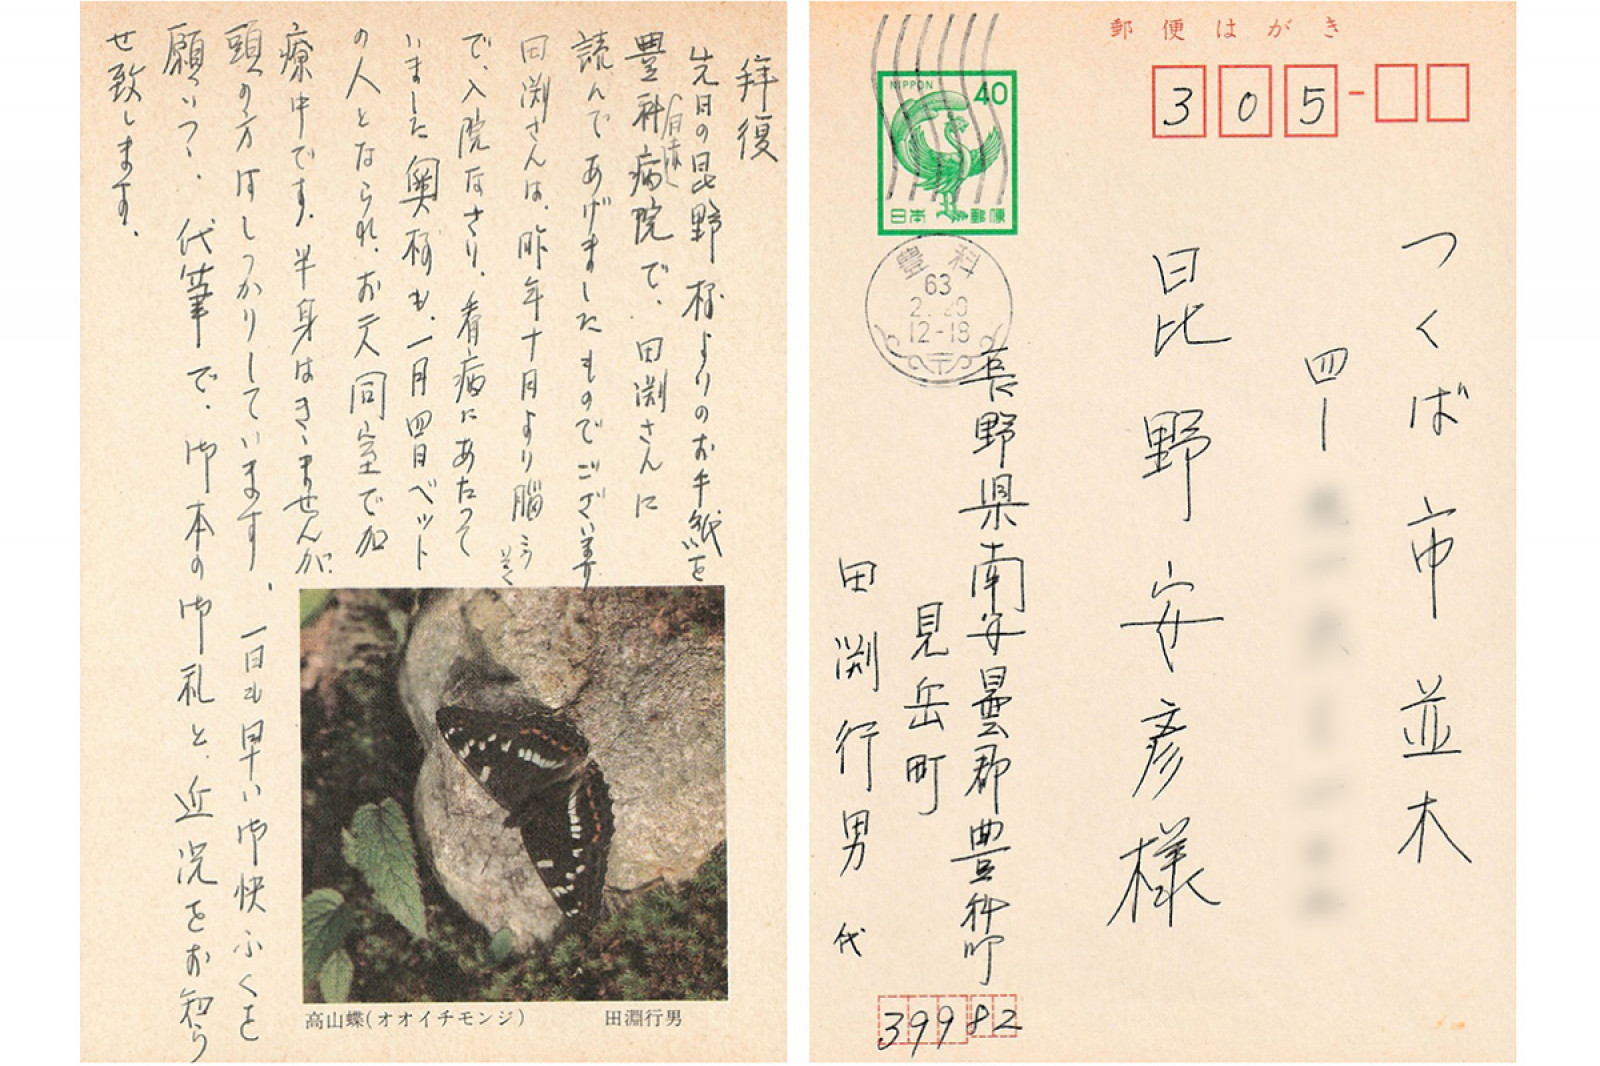 拝復
先日の昆野様よりのお手紙を
豊科病院で、田淵さんに
読んであげましたものでございます
田渕さんは、昨年十月より脳こうそく
で、入院なさり、看病にあたって
いました奥様も、一月四日ベット
の人となられ、お二人同室で加
療中です。半身はきゝませんが、
頭の方はしっかりしています。一日も早い御快ふくを
願いつゝ、代筆で、御本の御礼と、近況をお知ら
せ致します。
高山蝶(オオイチモンジ)
田淵行男
郵便はがき
305
NIPPON
40
日本郵便
豊科
63
2.20
12-18
つくば市並木
四ー
昆野安彦様
長野県南安曇郡豊科町
見岳町
田渕行男 代
39982